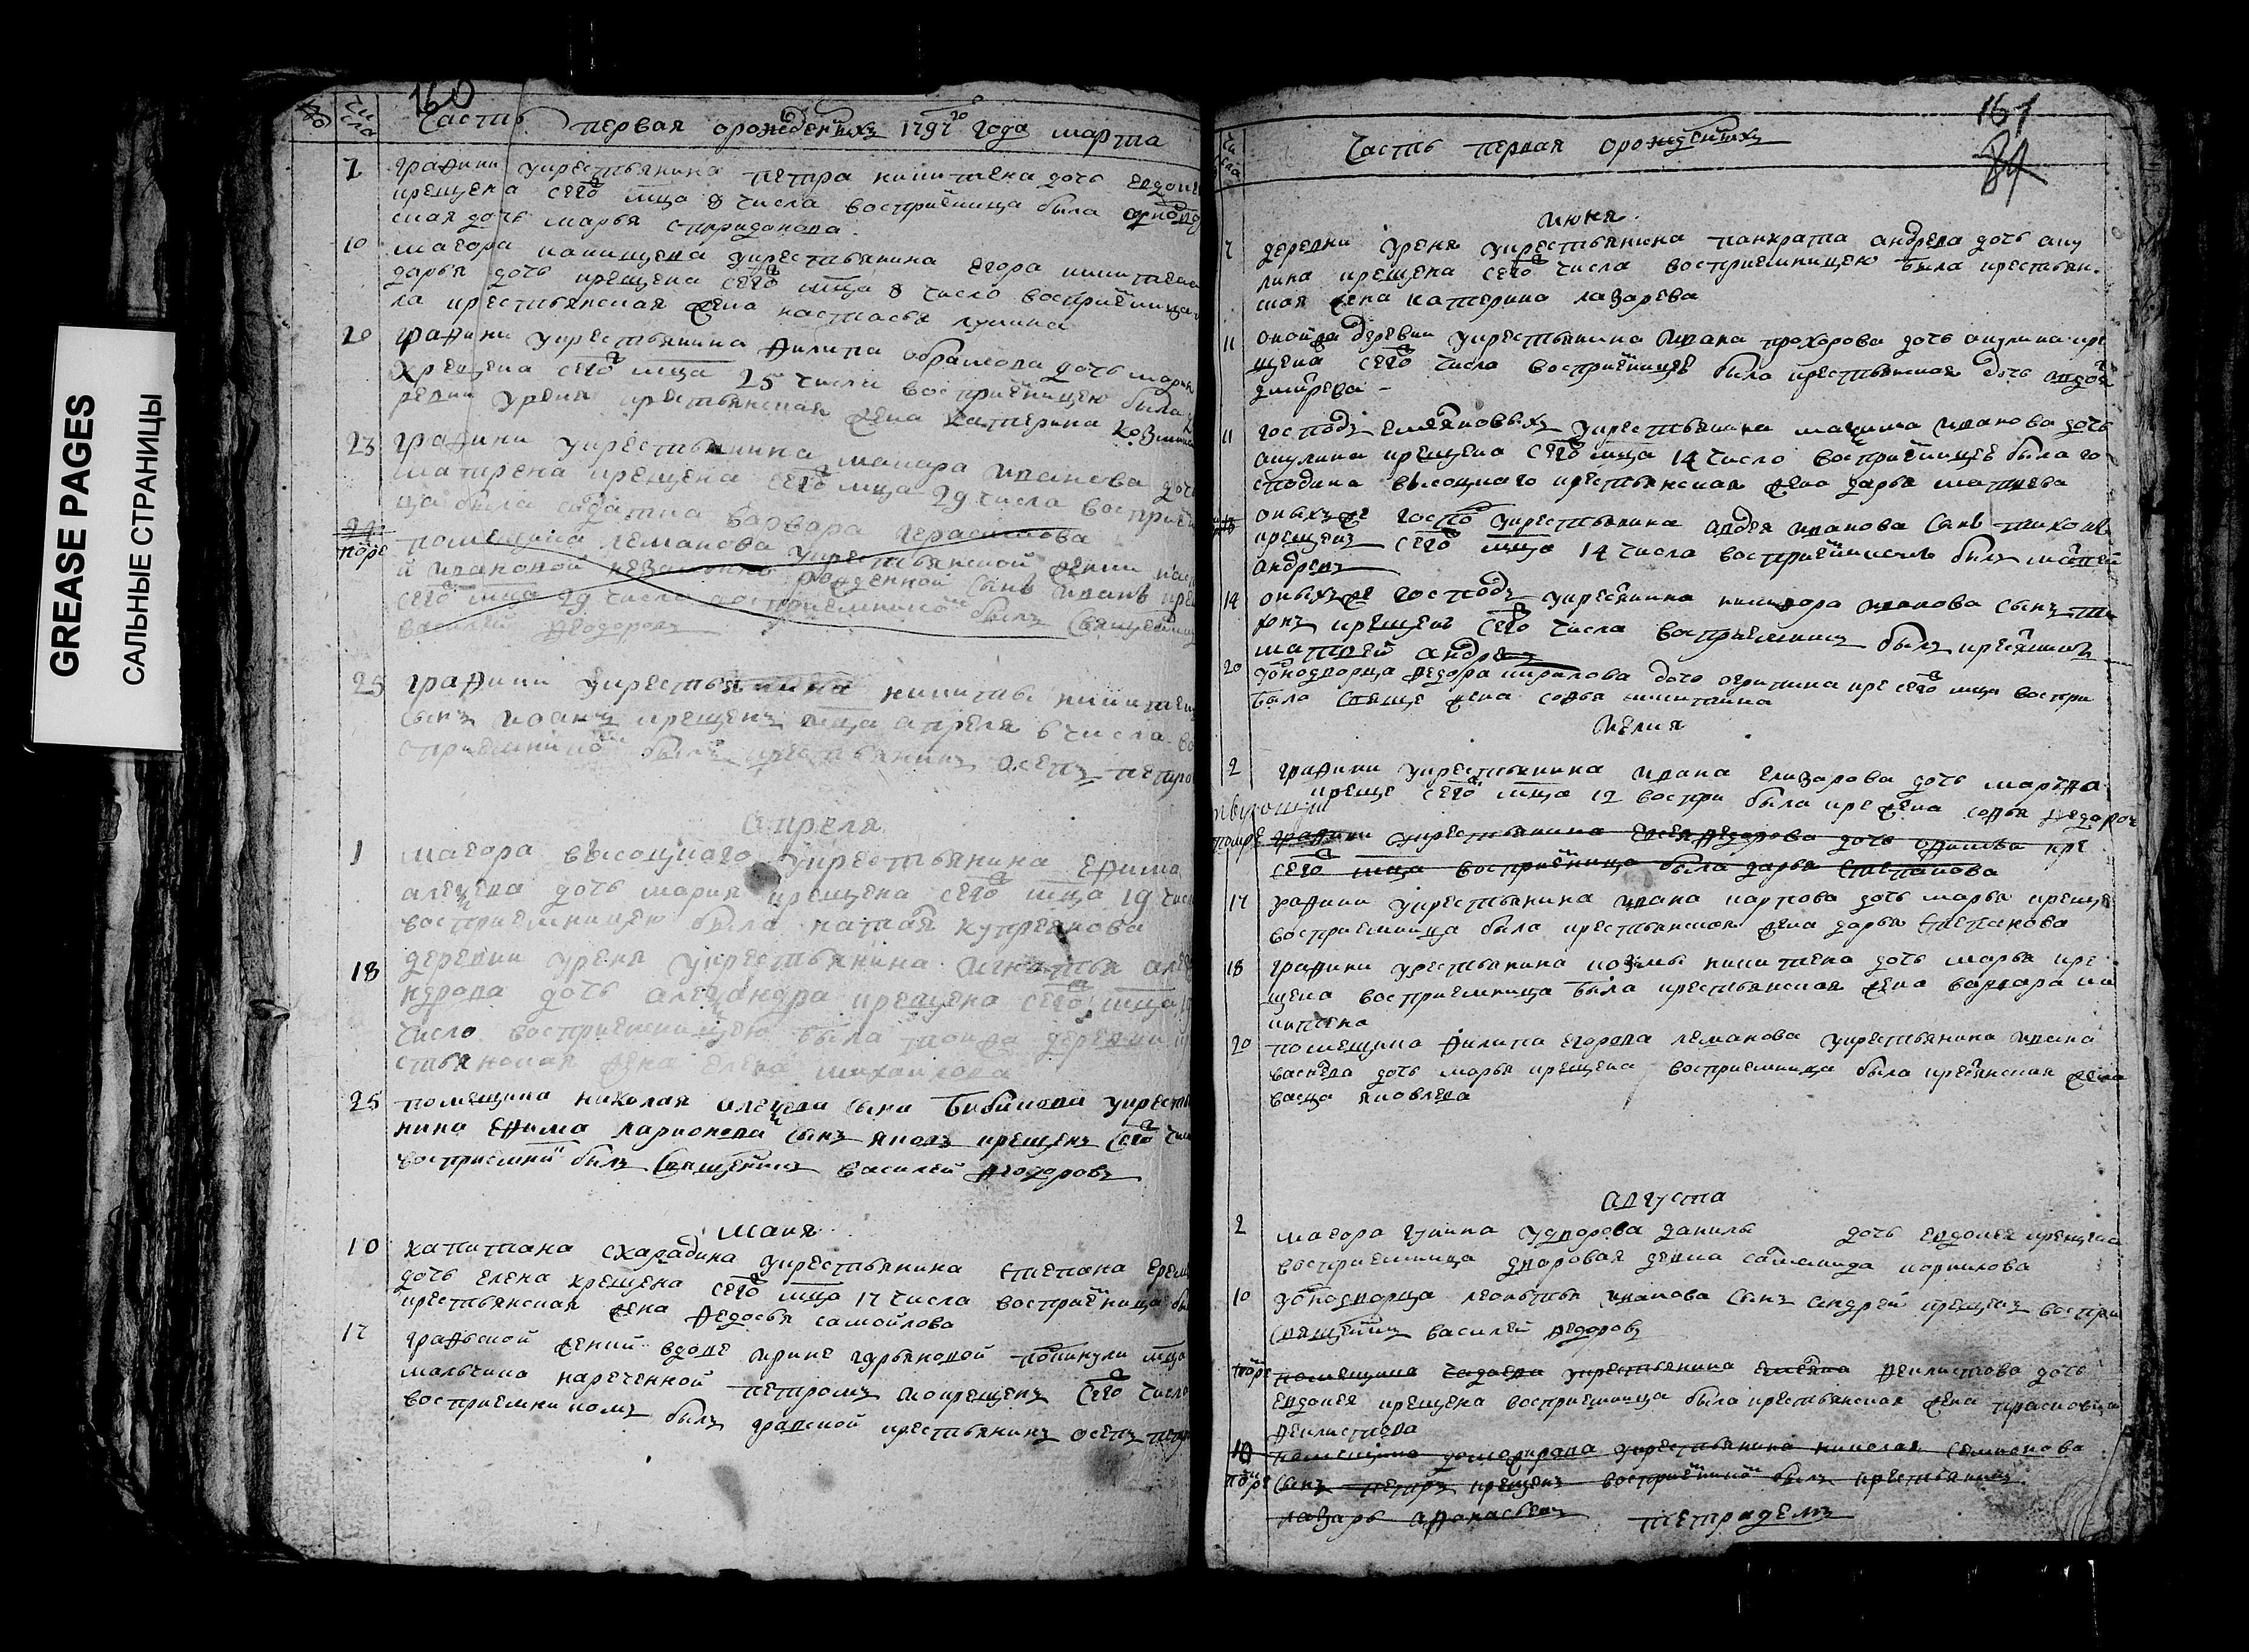 GREASE PAGES
САЛЬНЫЕ СТРАНИЦЫ
160
числа
Часть первая орожденныхъ 179 года марта
7 графини укрестьянина петра никитина дочь евдоки
крещена сего мца 8 числа восприемница была
ская дочь марья спиридонова
10 маеора укрестьянина егора никитина
дарья дочь крещена сего мца число восприемница
ла крестьянская жена настасья лукина
20 графини укрестьянина филипа абрамова дочь мария
хрещена сего мца 25 числа восприемницею была
ревни уреня крестьянская жена катерина козмина
23 графини укрестьянина макара иванова доч
матрена крещена сего мца 29 числа восприем
ца была салдатка варвара герасимова
поре помещика лемакова укрестьянской женки
й ивановой незаконно рожденной сынъ иванъ кре
сего мца 29 число восприемникомъ былъ священник
василей феодоровъ
25 графини укрестьянина никиты никитина
сынъ иванъ крещенъ мца апреля 6 числа во
сприемникомъ былъ крестьянинъ осепъ петро
апреля
1 маеора высоцкаго укрестьянина ефима
алеѯева дочь мария крещена сего мца 19 числ
восприемницею была куприянова
18 деревни уреня укрестьянина игнатья алеѯ
ндрова дочь алеѯандра крещена сего мца
число восприемницею была тоижа деревни кр
стьянская жена елена михайлова
25 помещика николая алеѯеева сына бибикова укресть
нина ефима ларионова сынъ яковъ крещенъ сего чис
восприемник былъ священникъ василей феодоровъ
маия
10 капитана скарадина укрестьянина степана ерем
дочь елена хрещена сего мца 17 числа восприемница бы
крестьянская жена федосья самойлова
17 графской женки вдове ирине гурьяновой покинули мца
мальчика нареченной петромъ икрещенъ сего число
восприемникомъ былъ графской крестьянинъ осепъ петр
161
84
числа
Часть первая орожденныхъ
июня
7 деревни уреня укрестьянина панкрата андреева дочь аку
лина крещена сего числа восприемницею была крестьян
ская жена катерина лазарева
11 оной же деревни укрестьянина ивана прохорова дочь акулина кре
щена сего число восприемницею была крестьянская дочь авдотя
дмитрева
11 господъ емельяновыхъ укрестьянина маѯима иванова дочь
акулина крещена сего мца 14 число восприемницею была го
сподина высоцкаго крестьянская жена дарья матвева
оныхъже господъ укрестьянина авдея иванова сынъ тихонъ
крещенъ сего мца 14 числа восприемникомъ былъ матвей
андревъ
14 оныхъже господъ укрестьянина никифора иванова сынъ ти
хонъ крещенъ сего числа восприемникъ былъ крестьянинъ
матвей андревъ
20 уоднодворца федора кирилова дочь огрипина кре сего мца воспри
была свяще жена софья никитина
июлия
2 графини укрестьянина ивана елизарова дочь марфа
креще сего мца 12 воспри была кре жена софья федоров
поире графини укрестьянина евсея федорова дочь офимья кре
сего мца восприемница была дарья степанова
17 рафини укрестьянина ивана карпова дочь марья креще
восприемница была крестьянская жена дарья степанова
18 графини укрестьянина козмы никитина дочь марья кре
щена восприемница была крестьянская жена варвара ни
китина
20 помещика филипа егорова лемакова укрестьянина ивана
василева дочь марья крещена восприемница была крестьянская жена
васца яковлева
августа
2 маеора удворова данилы дочь евдокея крещена
восприемница дворовая девка саламанида корнилова
10 уоднодворца леонтья иванова сынъ андрей крещенъ воспри
священникъ василей федоровъ
поире помещика чадаева укрестьянина емеляна феклистова дочь
евдокея крещена восприемница была крестьянская жена прасковья
феклистова
10 помещика доможирова укрестьянина николая семионова
поире сынъ петръ крещенъ восприемникомъ былъ крестьянинъ
лазарь афонасьевъ